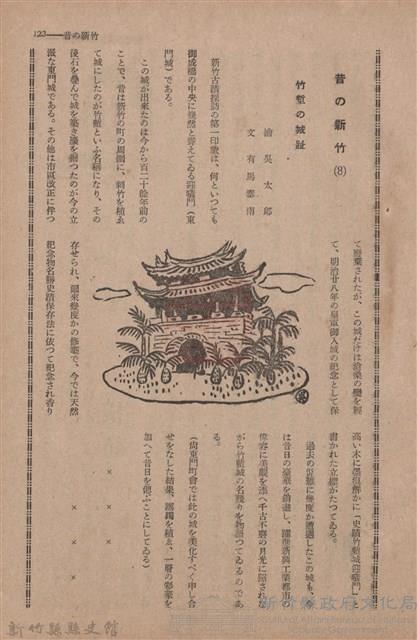 123——昔の新竹
昔の新竹(8)
竹塹の城趾
繪 吳 太 郎
文 有 馬 泰 南
新竹古蹟探訪の第一印象は、何といつても
御成橋の中央に巍然と聳えてゐる迎曦門(東
門城)である。
この城が出來たのは今から百二十餘年前の
ことで、昔は新竹の町の周圍に、刺竹を植ゑ
て城にしたのが竹塹といふ名稱になり、その
後石を疊んで城を築き濠を掘つたのが今の立
派な東門城である。その他は市區改正に伴つ
て廢棄されたが、この城だけは滄桑の變を經
て、明治廿八年の皇軍御入城の記念として保
存せられ、爾來幾度かの修築で、今では天然
紀念物名勝史蹟保存法に依つて紀念され香り
高い木に墨痕鮮かに「史蹟竹塹城迎曦門」と
書かれた立標がたつてゐる。
過去の災難に幾度か遭遇したこの城も、今
は昔日の
千古不磨の月光に照され
がら竹塹城の名殘りを物語つてゐるのであ
る。
(尚東門町會では此の城を美化すべく申し合
せをなした結果、
加へて昔日を偲ぶことにしてゐる)
× × × ×
× × ×
新竹縣縣史館
新竹縣政府文化局